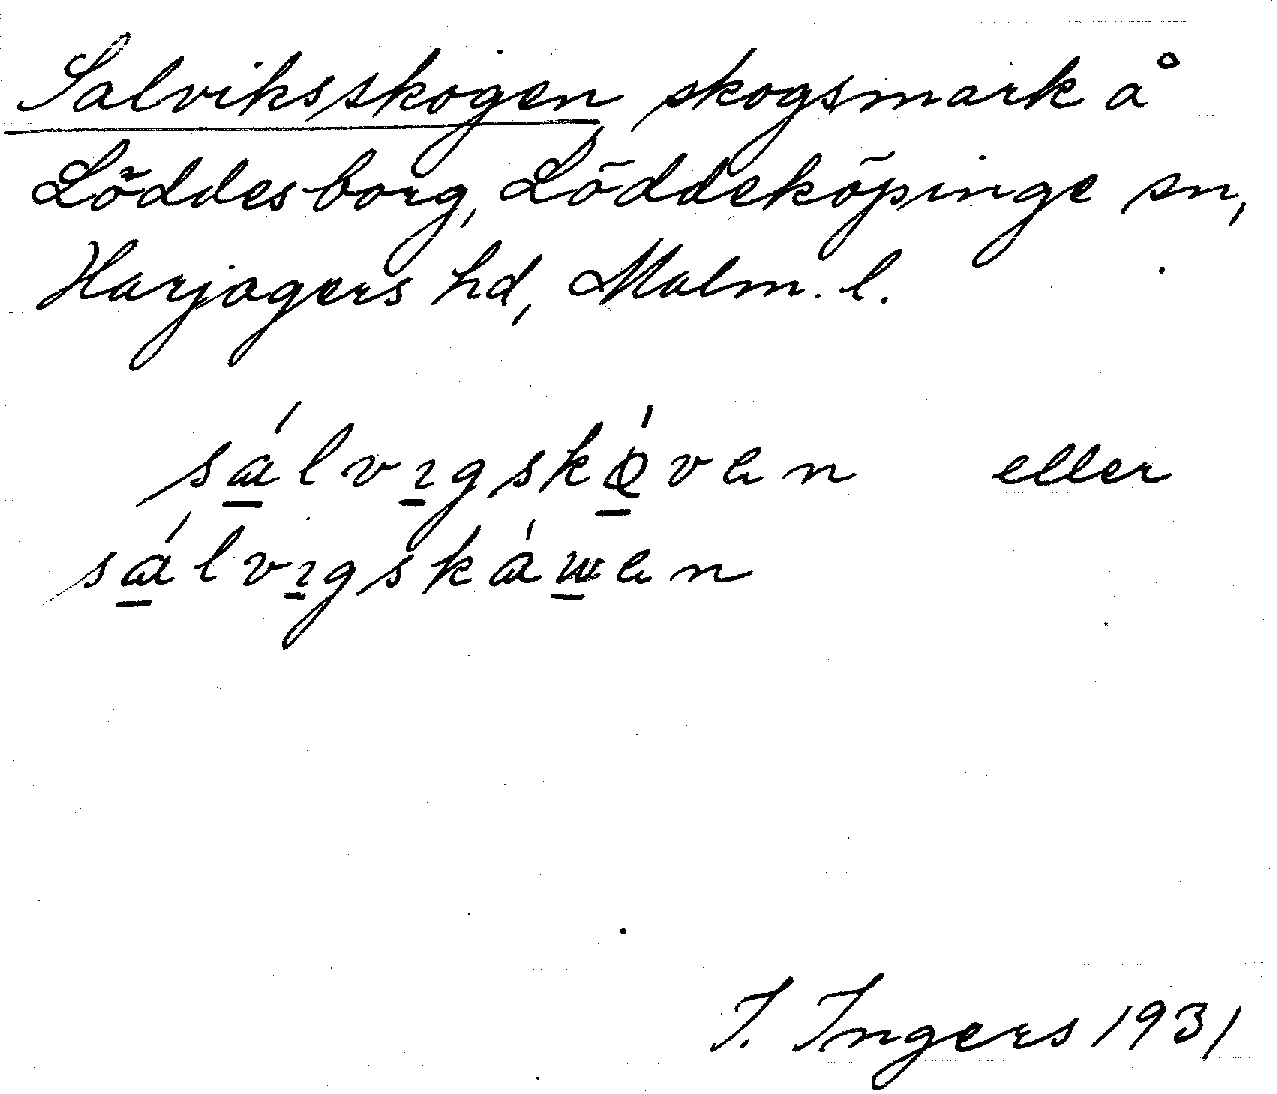 Salviksskogen skogsmark å
Löddesborg, Löddeköpinge sn,
Harjagers hd, Malm. l.
sálvıgskǫ́van eller
sálvıgskáwan
I. Ingers 1931